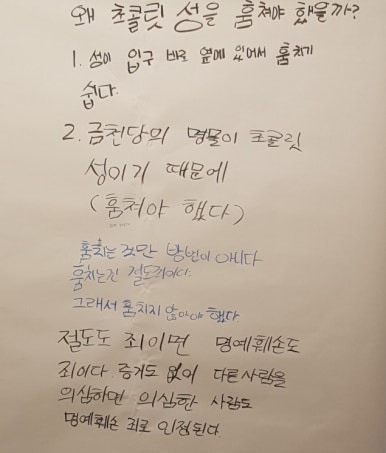 왜 초콜릿 성을 훔쳐야 했을까?
1. 성이 입구 바로 옆에 있어서 훔치기
쉽다.
2. 금천당의 명물이 초콜릿
성이기 때문에
(훔쳐야 했다)
훔치는 것만 방법이 아니다
훔치는건 절도죄이다.
그래서 훔치지 않아야 했다
절도도 죄이면 명예훼손도
죄이다 증거도 없이 다른사람을
의심하면 의심한 사람도
명예훼손 죄로 인정된다.